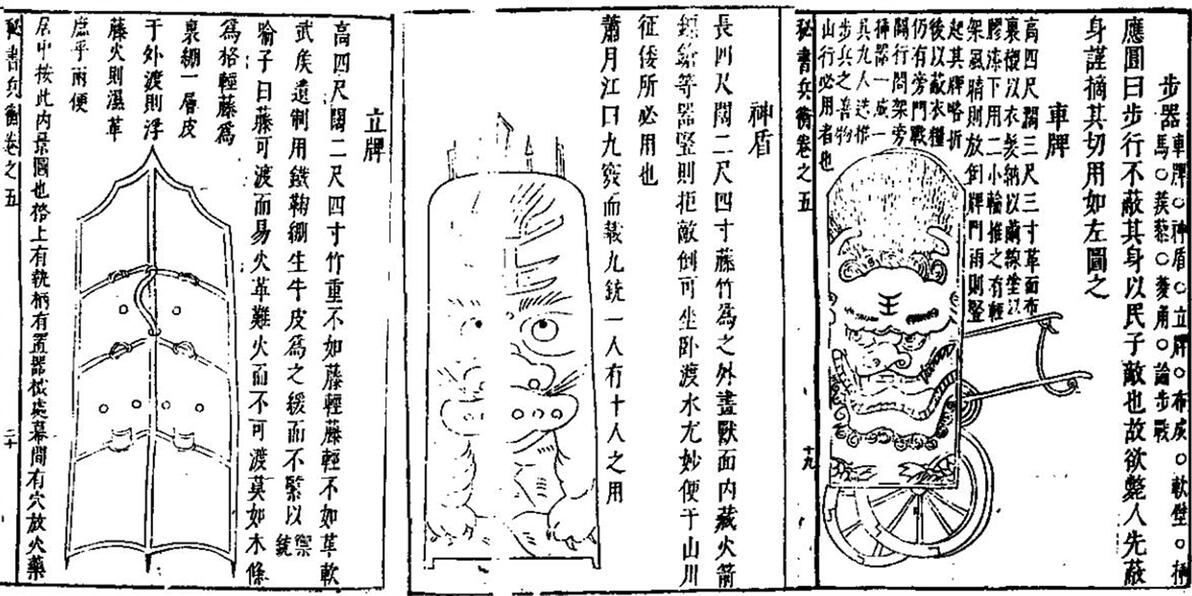 步器車牌○神盾○立牌○布城○軟壁○拒
馬○蒺藜○菱角○論步戰
應圓曰步行不蔽其身以民子敵也故欲斃人先蔽
身謹摘其切用如左圖之
車牌
高四尺濶三尺三寸革面布
裏襯以衣髮納以繭綿塗以
膠漆下用二小輪推之有輕
架風晴則放倒牌門雨則豎
起其牌略折
後以蔽衣糧
仍有旁門戰
闘行問架旁
揷器一威一
具九人迭推
步兵之喜物
山行必用者也
秘書兵衡卷之五
十九
神盾
長四尺濶二尺四寸藤竹爲之外畫獸面内藏火箭
銃鎗等器豎則拒敵倒可坐卧渡水尤妙便于山川
征倭所必用也
蕭月江曰九竅而載九銃一人有十人之用
立牌
高四尺闊二尺四寸竹重不如藤輕藤輕不如革軟
武矦遺制用鐵鞠綳生牛皮爲之緩而不緊以禦銃
喻子曰藤可渡而易火革難火而不可渡莫如木條
爲格輕藤爲
裏綳一層皮
于外渡則浮
藤火則濕革
庶乎兩便
居中按此内景圖也格上有執柄有置器械其幕間有穴放火藥
秘書兵衡卷之五
二十